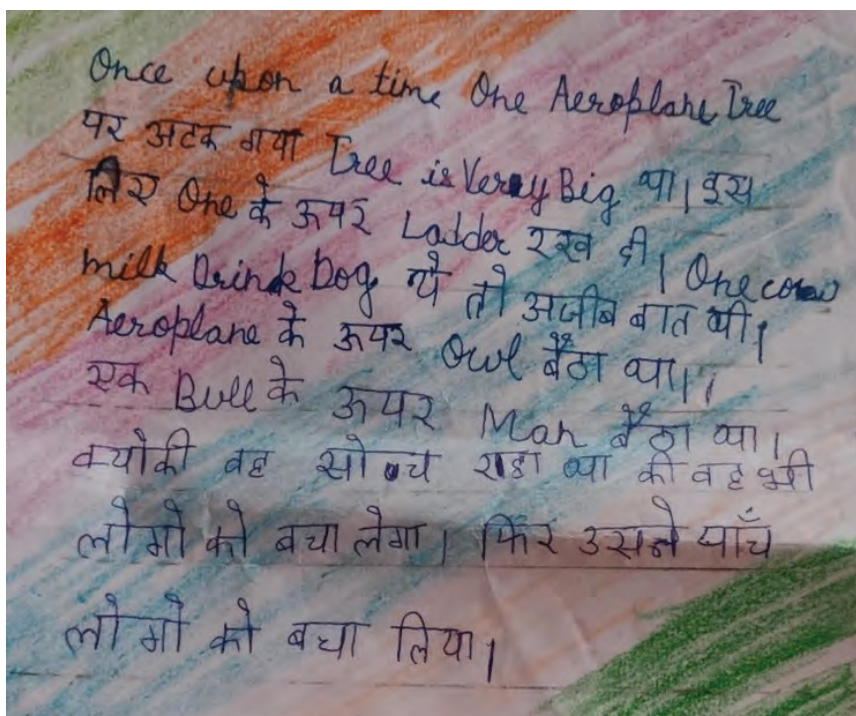 Once upon a time One Aeroplane Tree
पर अटक गया Tree is Very Big था। इस
लिए One के ऊपर Ladder रख दी। One cow
milk Drink Dog ये तो अजीब बात थी।
Aeroplane के ऊपर Owl बैठा था।।
एक Bull के ऊपर Man बैठा था।
क्योकी वह सोच रहा था की वह भी
लोगो को बचा लेगा। फिर उसने पाँच
लोगो को बचा लिया।